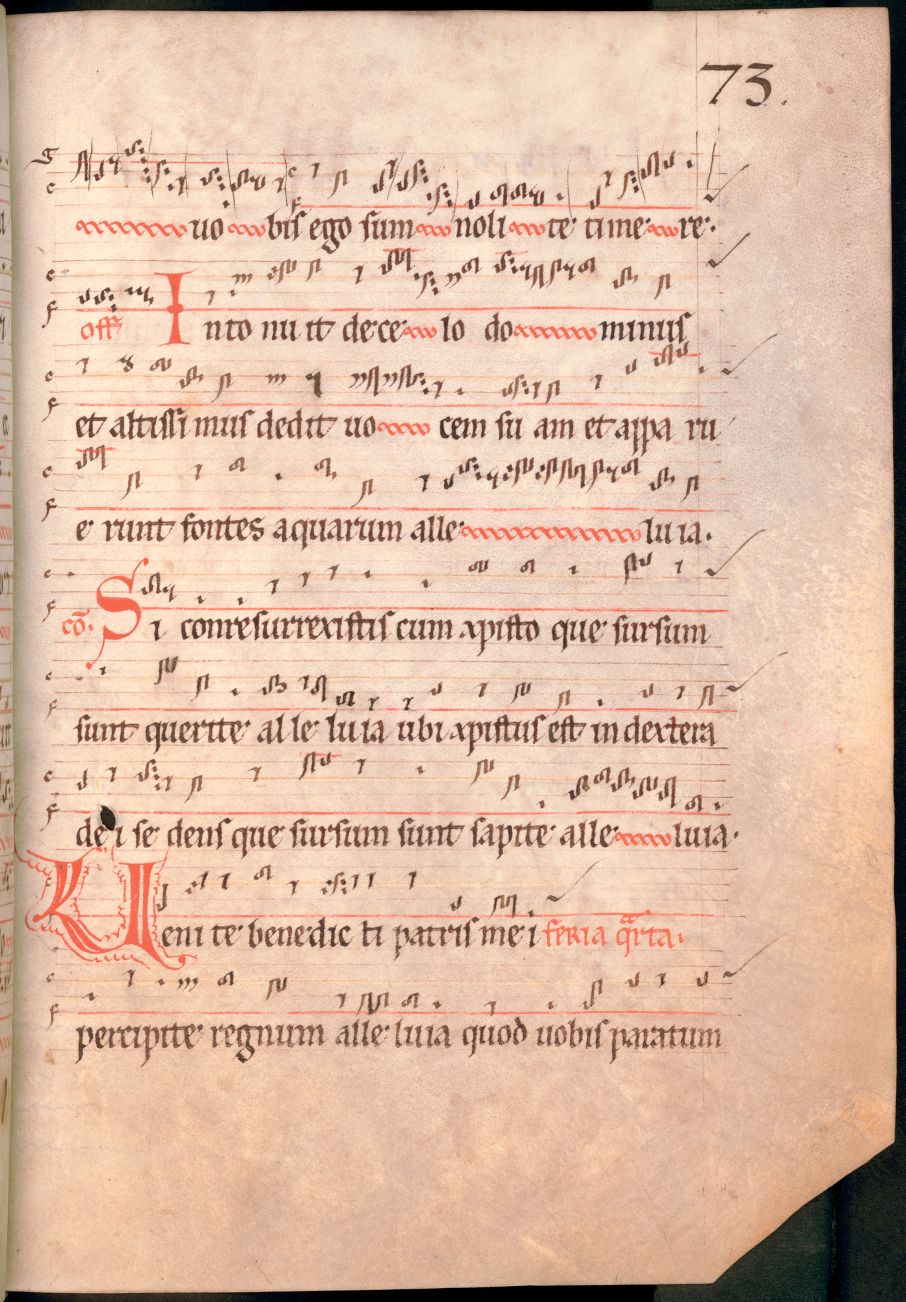 73.
uo bis ego sum noli te time re.
off̄ Into nu it de ce lo do minus
et altissi mus dedit uo cem su am et appa ru
e runt fontes aquarum alle lu ia.
cō. Si conresurrexistis cum xpisto que sursum
sunt querite al le lu ia ubi xpistus est in dextera
de i se dens que sursum sunt sapite alle luia.
Ueni te bene dic ti patris me i feria qrta.
percipite regnum alle luia quod uobis paratum